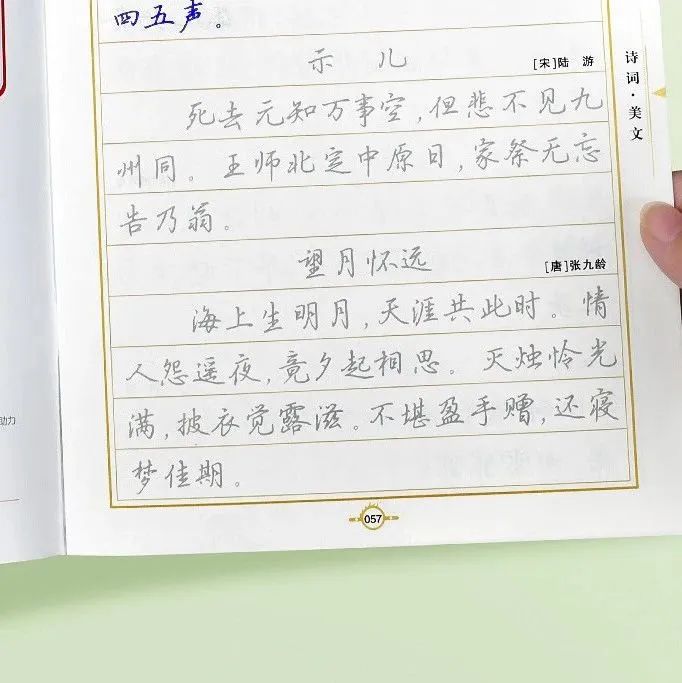 四五声。
示儿
[宋]陆 游
死去元知万事空,但悲不见九
州同。王师北定中原日,家祭无忘
告乃翁。
望月怀远
[唐]张九龄
海上生明月,天涯共此时。情
人怨遥夜,竟夕起相思。灭烛怜光
满,披衣觉露滋。不堪盈手赠,还寝
梦佳期。
057
诗词·美文
助力